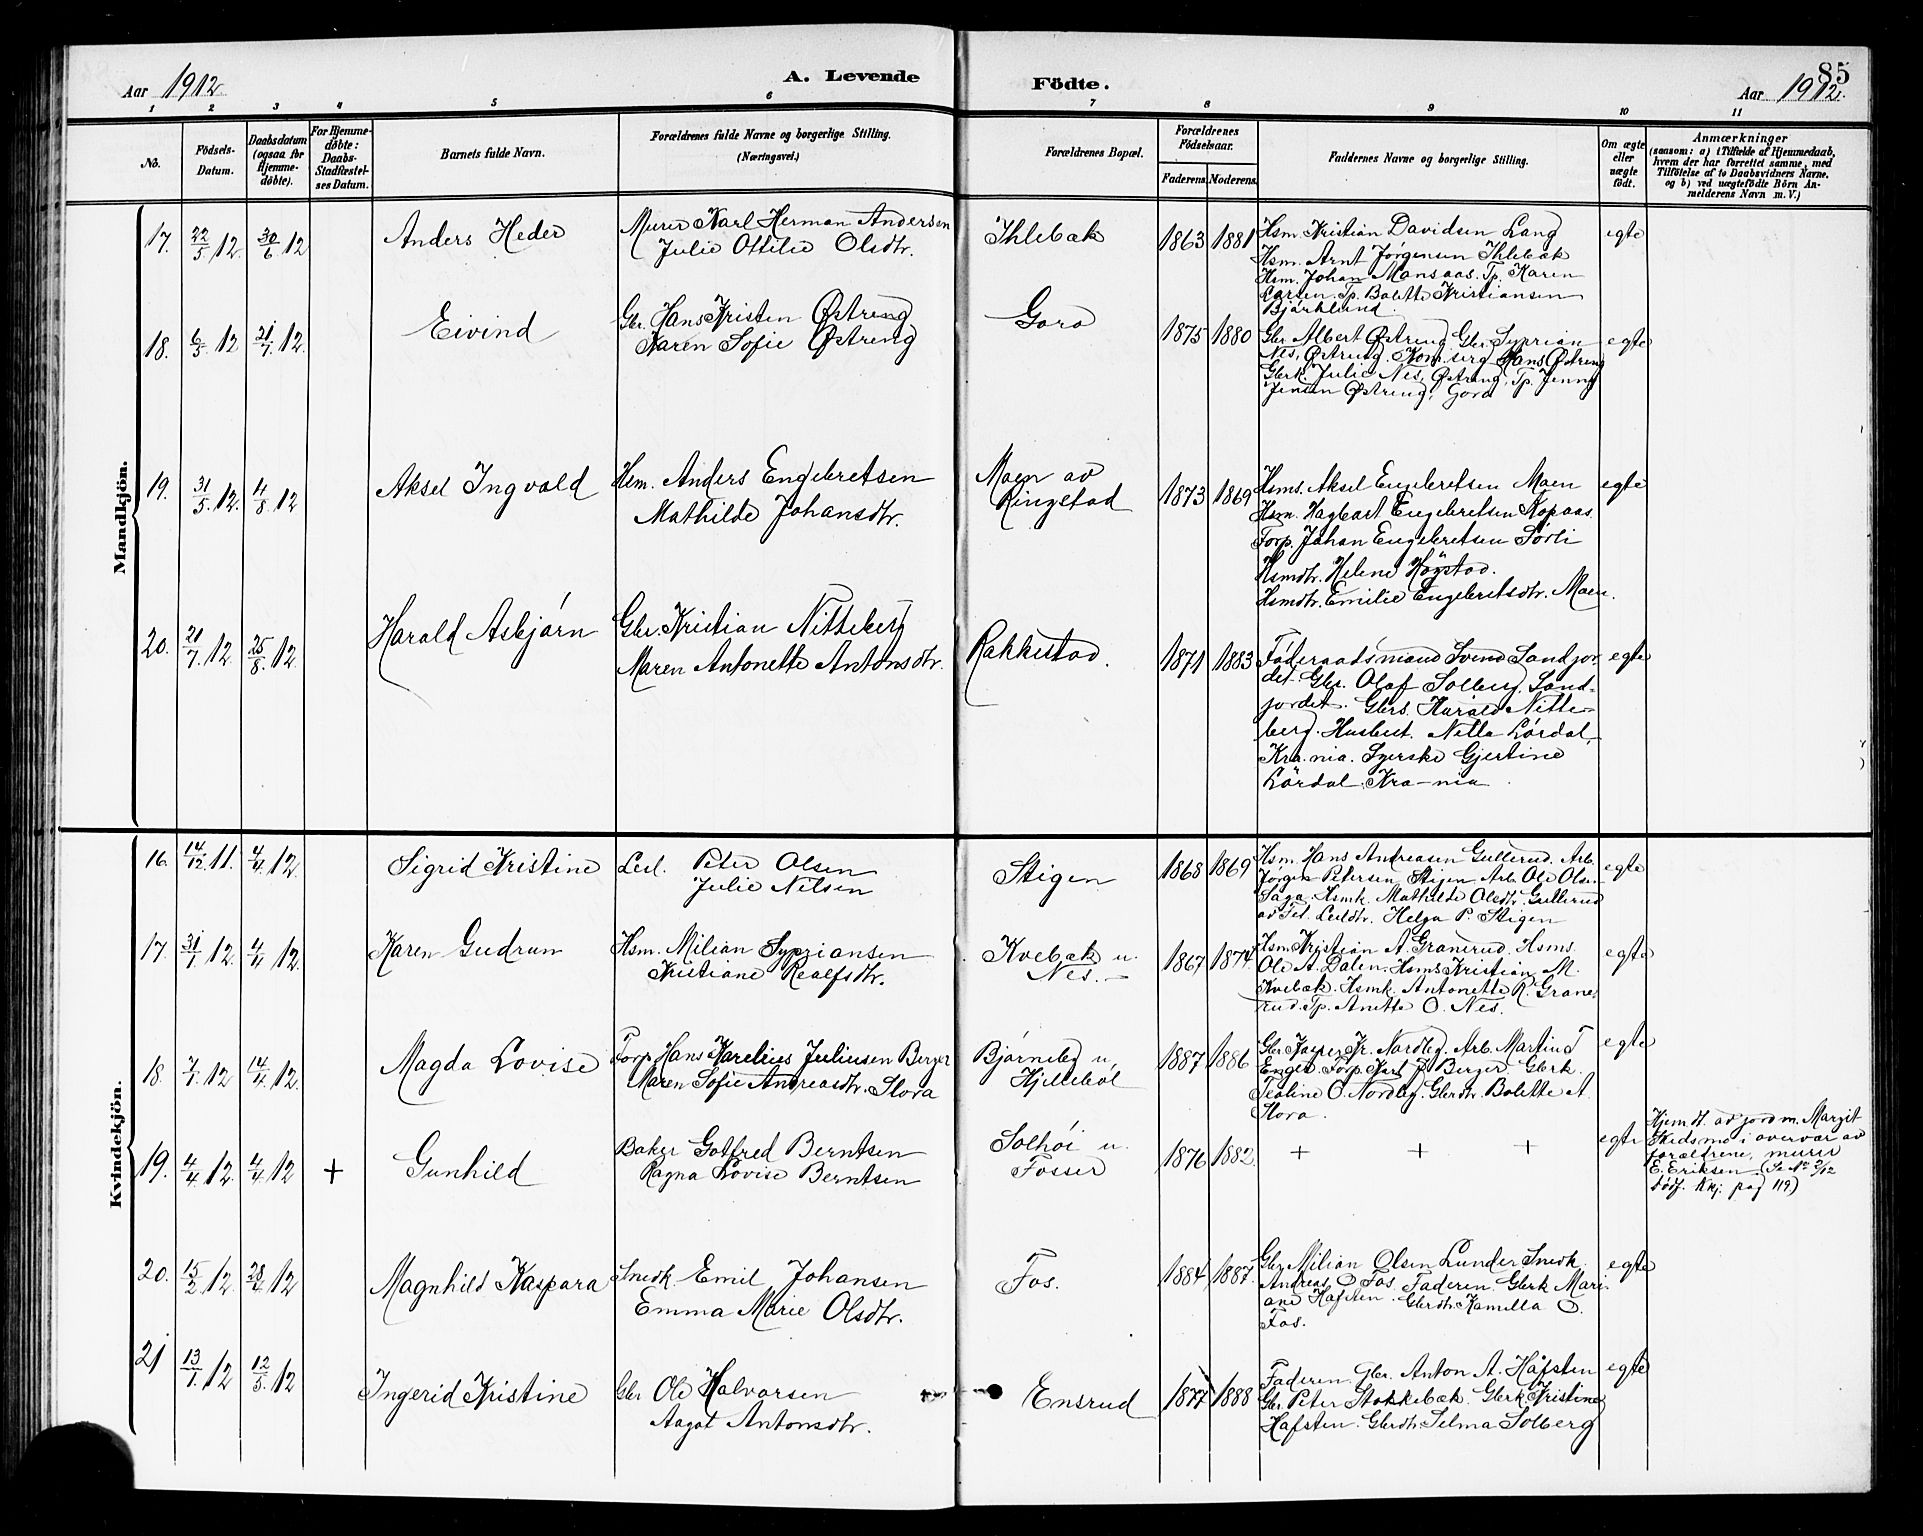 Aar 1912.
A. Levende
Födte.
85
Aar 1912.
1 2 3 4 5 6 7 8 9 10 11
No.
Födsels-Datum.
Daabsdatum (ogsaa for Hjemme-döbte).
For Hjemme-döbte: Daabs-Stadfæstel-ses Datum.
Barnets fulde Navn.
Forældrenes fulde Navne og borgerlige Stilling. (Næringsvei.)
Forældrenes Bopæl.
Forældrenes Födselsaar.
Faderens. Moderens.
Faddernes Navne og borgerlige Stilling.
Om ægte eller uægte födt.
Anmærkninger
(saasom: a) i Tilfælde af Hjemmedaab, hvem der har forrettet samme, med Tilföielse af to Daabsvidners Navne. og b) ved uægtefödte Börn An-melderens Navn m. V.)
Mandkjön.
17. 22/5 12. 30/6 12 Anders Heder
Murer Karl Herman Andersen
Julie Ottilie Olsdtr.
Ihlebæk 1863 1881
Hsm. Kristian Davidsen Lang
Hsm. Arnt Jörgensen Ihlebæk
Hsm. Johan Mansaas. Tp. Karen
Larsen. Tp. Bolette Kristiansen
Björklund.
egte
18. 6/5 12 21/7 12. Eivind
Gbr. Hans Kristen Østreng
Karen Sofie Østreng
Gora 1875 1880
Gbr. Albert Østreng. Gbr. Syprian
Nes, Østreng. Hans Østreng
Gbrk. Julie Nes, Østreng, Tp. Jenny
Jensen Østreng, Gora
egte
19. 31/5 12. 4/8 12 Aksel Ingvald
Hsm. Anders Engebretsen
Mathilde Johansdtr.
Moen av
Ringstad 1873 1869
Hsms. Aksel Engebretsen Moen
Hsm. Hagbart Engebretsen Kopaas
Forp. Johan Engebretsen Sörli
Hsmdtr. Helene Högstad.
Hsmdtr. Emilie Engebretsdtr. Moen.
egte
20. 21/7 12 25/8 12. Harald Asbjørn
Gbr. Kristian Nitteberg
Maren Antonette Antonsdtr.
Rakkestad. 1871 1883
Föderaadsmand Svend Sandjor-
det. Gbr. Olaf Solberg. Sand-
jordet. Gbrs. Harald Nitte-
berg. Husbest. Nella Lördal,
Kra.nia. Syerske Gjertine
Lördal, Kra-nia.
egte
Kvindekjön.
16. 14/12. 11. 4/4 12. Sigrid Kristine
Leil. Peter Olsen
Julie Nilsen
Stigen 1868 1869
Hsm. Hans Andreasen Gullerud. Arb.
Jörgen Petersen Stigen Arb. Ole Olsen
Saga. Hsmk. Mathilde Olsdtr. Gullerud
Leildtr. Helga P. Stigen
egte
17. 31/1 12. 4/4 12. Karen Gudrun
Hsm. Milian Sypriansen
Kristiane Realfsdtr.
Kvebæk u.
Nes. 1867 1874
Hsm. Kristian A. Granerud. Hsms.
Ole A. Dalen. Hsms Kristian M.
Kvebæk. Hsmk. Antonette R. Grane-
rud. Tp. Anette O. Nes.
egte
18. 7/1. 12 14/4. 12. Magda Lovise
Forp. Hans Karelius Juliusen Berger
Maren Sofie Andreasdtr. Slora
Bjørneby u.
Hjellebøl 1887 1886
Gbr. Kasper Kr. Nordby. Arb. Martin T
Enger. Forp. Karl J. Berger. Gbrk.
Tealine O. Nordby. Gbrdtr. Bolette A
Slora.
egte
19. 4/4 12. 4/4 12 + Gunhild
Baker Gotfred Berntsen
Ragna Lovise Berntsen
Solhöi u.
Fosser 1876 1882.
+ + +
egte
Hjem dt. av jordm. Margit
Skedsmo i overvær av
forældrene, murer
E. Eriksen. (Se No 2/12
dödf. Kkj. pag 119)
20. 15/2 12. 28/4 12 Magnhild Kaspara
Snedk. Emil Johansen
Emma Marie Olsdtr.
Fos. 1884 1887.
Gbr. Milian Olsen Lunder Snedk.
Andreas O Fos. Faderen. Gbrk Mari-
ane Hafsten. Gbrdtr. Kamilla O.
Fos.
egte
21 13/1. 12 12/5. 12 Ingerid Kristine
Gbr Ole Halvorsen
Aagot Antonsdtr.
Ensrud 1877 1888
Faderen. Gbr. Anton A. Hafsten
Gbr. Peter Stokkebæk. Gbrk Kristine
Hafsten. Gbrdtr. Selma Solberg
egte